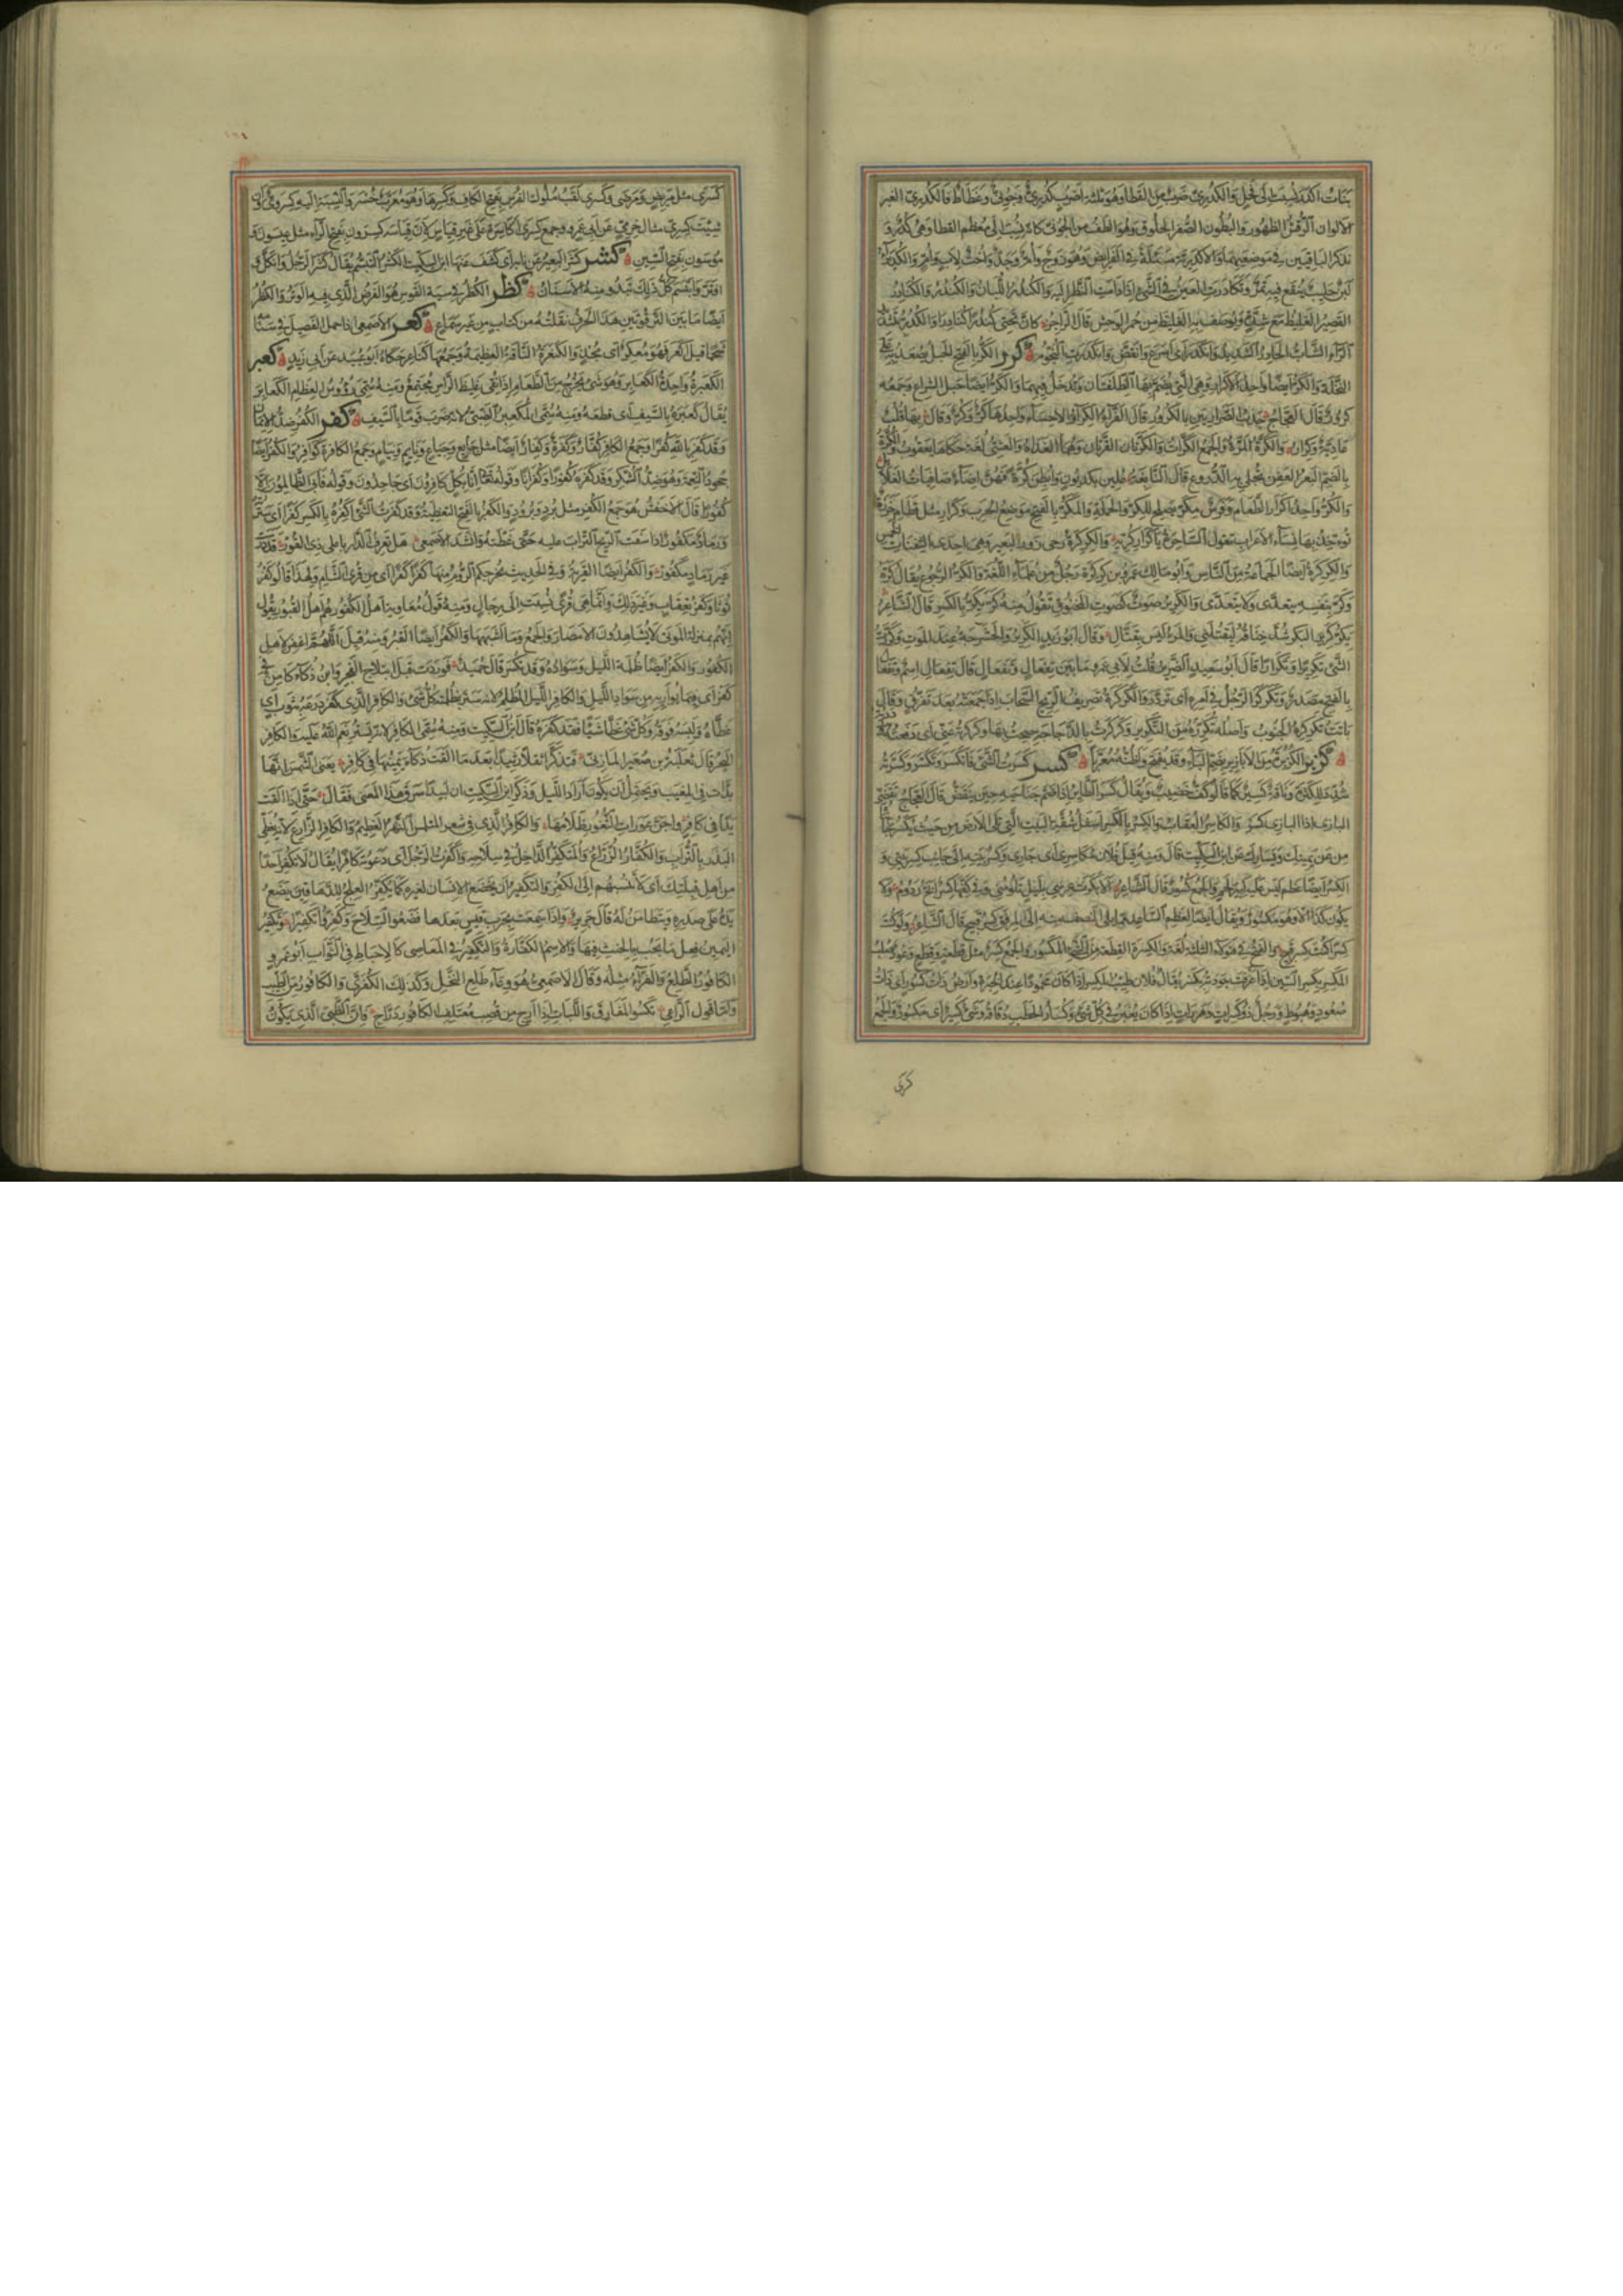 بنات اكدر تنسب الى فحل والكدرى ضرب من القطا وهو ثلثة اضرب كدرى وجونى وغطاط فالكدرى الغبر
الالوان الرقش الظهور والبطون الصفر الحلوق وهو الطف من الجونى كانه نسب الى معظم القطا وهى كدر و
نذكر الباقيين فى موضعهما والاكدرية مسئلة فى الفرايض وهى زوج وام وجد واخت لاب وام والكديراء
لبن حليب ينقع فيه تمر وتكادرت العين فى الشىء اذا ادامت النظر اليه والكندر اللبان والكندر والكنادر
القصير الغليظ مع شدة ويوصف به الغليظ من حمر الوحش قال الراجز كان تحتى كندرا كنادرا والكدر مثال
الشاب الحادر الشديد وانكدر اى اسرع وانقض وانكدرت النجوم كرر الكر بالفتح الحبل يصعد به على
النخلة والكر ايضا واحد الاكرار وهى التى تضم بها الظلفتان وتدخل فيهما والكر ايضا حبل الشراع وجمعه
كرور قال العجاج جذب الصراريين بالكرور قال الفراء الكر واحد وكر وقال بها قلب
عادية وكرار والكرة المرة والجمع الكرات والكرتان القرتان وهما الغداة والعشى لغة حكاها يعقوب والكرة
بالضم البعر العفن تجلى به الدروع قال النابغة علين بكديون وابطن كرة فهن اضاء صافيات الغلائل
والكر واحد اكرار الطعام وفرس مكر يصلح للكر والحملة والمكر بالفتح موضع الحرب وكرار مثل قطام خرزة
تؤخذ بها نساء الاعراب تقول الساحرة يا كرار كريه والكركرة رحى زور البعير وهى احدى الثفنات الخمس
والكركرة ايضا الجماعة من الناس وابو مالك عمرو بن كركرة رجل من علماء اللغة والكر الرجوع يقال كره
وكر بنفسه يتعدى ولا يتعدى والكرير صوت كصوت المختنق تقول منه كر يكر بالكسر قال الشاعر
يكر كرير البكر شد خناقه ليقتلنى والمرء ليس بقتال وقال ابو زيد الكرير الحشرجة عند الموت وكررت
الشىء تكريرا وتكرارا قال ابو سعيد الضرير قلت لابى عمرو ما بين تفعال وتفعال قال تفعال اسم وتفعال
بالفتح مصدر وتكركر الرجل فى امره اى تردد والكركرة تصريف الريح السحاب اذا جمعته بعد تفرق وقال
باتت تكركره الجنوب واصله تكرره من التكرير وكركرت بالدجاجة صحت بها وكركرته عنى اى دفعته
كزبر الكزبرة من الابازير بضم الباء وقد تفتح واظنه معربا كسر كسرت الشىء فانكسر وتكسر وكسرته
شدد للكثرة وناقة كسير كما قالوا كف خضيب ويقال كسر الطائر اذا ضم جناحيه حين ينقض قال العجاج تقضى
البازى اذا البازى كسر والكاسر العقاب والكسر بالكسر اسفل شقة البيت التى تلى الارض من حيث يكسر
من عن يمينك ويسارك عن ابن السكيت قال ومنه قيل فلان مكاسرى اى جارى وكسر بيته الى جانب كسر بيتى و
الكسر ايضا عظم ليس عليه كبير لحم والجمع كسور قال الشاعر وفى كفها كسر ابح رذوم ولا
يكون كذا الا وهو مكسور ويقال ايضا لعظم الساعد مما يلى النصف منه الى المرفق كسر قبيح قال الشاعر ولو كنت
كسرا كنت كسر قبيح والكسرة القطعة من الشىء المكسور والجمع كسر مثل قطعة وقطع وعود صلب
المكسر بكسر السين اذا عرفت جودته بكسره يقال فلان طيب المكسر اذا كان محمودا عند الخبرة وارض ذات كسور اى ذات
صعود وهبوط ورجل ذو كسرات وهزرات اذا كان يغبن فى كل شىء وكسار الحطب دقاقه وشىء كسير اى مكسور والجمع
كسرى
كسرى مثل مريض ومرضى وكسرى لقب ملوك الفرس بفتح الكاف وكسرها وهو معرب خسرو والنسبة اليه كسروى وان
شئت كسرى مثال حرمى عن ابى عمرو وجمع كسرى اكاسرة على غير قياس لان قياسه كسرون بفتح الراء مثل عيسون و
موسون بفتح السين كشر كشر البعير عن نابه اى كشف عنها ابن السكيت الكشر التبسم يقال كشر الرجل وانكل و
افتر وابتسم كل ذلك تبدو منه الاسنان كظر الكظر فى سية القوس هو الفرض الذى فيه الوتر والكظر
ايضا ما بين الترقوتين هذا الحرف نقلته من كتاب من غير سماع كعر الاصمعى اذا حمل الفصيل فى سنامه
شحما قيل اكعر فهو مكعر كعبر
الكعبرة واحدة الكعابر وهو شىء يخرج من الطعام اذا نقى غليظ الراس مجتمع ومنه سمى رؤوس العظام الكعابر
يقال كعبره بالسيف اى قطعه ومنه سمى المكعبر الضبى لانه ضرب قوما بالسيف كفر الكفر ضد الايمان
وقد كفر بالله كفرا وجمع الكافر كفار وكفرة وكفار ايضا مثل جايع وجياع ونايم ونيام وجمع الكافرة كوافر والكفر ايضا
جحود النعمة وهو ضد الشكر وقد كفره كفورا وكفرانا وقوله تعالى انا بكل كافرون اى جاحدون وقوله فابى الظالمون الا
كفورا قال الاخفش هو جمع الكفر مثل برد وبرود والكفر بالفتح التغطية وقد كفرت الشىء اكفره بالكسر كفرا اى سترته
ورماد مكفور اذا سفت الريح التراب عليه حتى غطته وانشد الاصمعى هل تعرف الدار باعلى ذى القور قد درست
غير رماد مكفور والكفر ايضا القرية وفى الحديث يخرجكم الروم منها كفرا كفرا اى من قرى الشام ولهذا قالوا كفر
توثا وكفر تعقاب وغير ذلك وانما هى قرى نسبت الى رجال ومنه قول معاوية اهل الكفور هم اهل القبور يقول
انهم بمنزلة الموتى لا يشاهدون الامصار والجمع وما اشبهها والكفر ايضا القبر ومنه قيل اللهم اغفر لاهل
الكفور والكفر ايضا ظلمة الليل وسواده وقد يكسر قال حميد فوردت قبل انبلاج الفجر وابن ذكاء كامن فى
كفر اى فيما يواريه من سواد الليل والكافر الليل المظلم لانه ستر بظلمته كل شىء والكافر الذى كفر درعه بثوب اى
غطاه ولبسه فوقه وكل شىء غطى شيئا فقد كفره قال ابن السكيت ومنه سمى الكافر لانه يستر نعم الله عليه والكافر
البحر قال ثعلبة بن صعير المازنى فتذكرا ثقلا رثيدا بعد ما القت ذكاء يمينها فى كافر يعنى الشمس انها
بدات فى المغيب ويحتمل ان يكون اراد الليل وذكر ابن السكيت ان لبيدا سرق هذا المعنى فقال حتى اذا القت
يدا فى كافر واجن عورات الثغور ظلامها والكافر الذى فى شعر المتلمس النهر العظيم والكافر الزارع لانه يغطى
البذر بالتراب والكفار الزراع والمتكفر الداخل فى سلاحه واكفرت الرجل اى دعوته كافرا يقال لا تكفر احدا
من اهل قبلتك اى لا تنسبهم الى الكفر والتكفير ان يخضع الانسان لغيره كما يكفر العلج للدهاقين يضع
يده على صدره ويتطامن له قال جرير واذا سمعت بحرب قيس بعدها فضعوا السلاح وكفروا تكفيرا وتكفير
اليمين فعل ما يجب بالحنث فيها والاسم الكفارة والتكفير فى المعاصى كالاحباط فى الثواب ابو عمرو
الكافور الطلع والفراء مثله وقال الاصمعى هو وعاء طلع النخل وكذلك الكفرى والكافور من الطيب
واما قول الراعى تكسو المفارق واللبات ذا ارج من قصب معتلف الكافور دراج فان الظبى الذى يكون